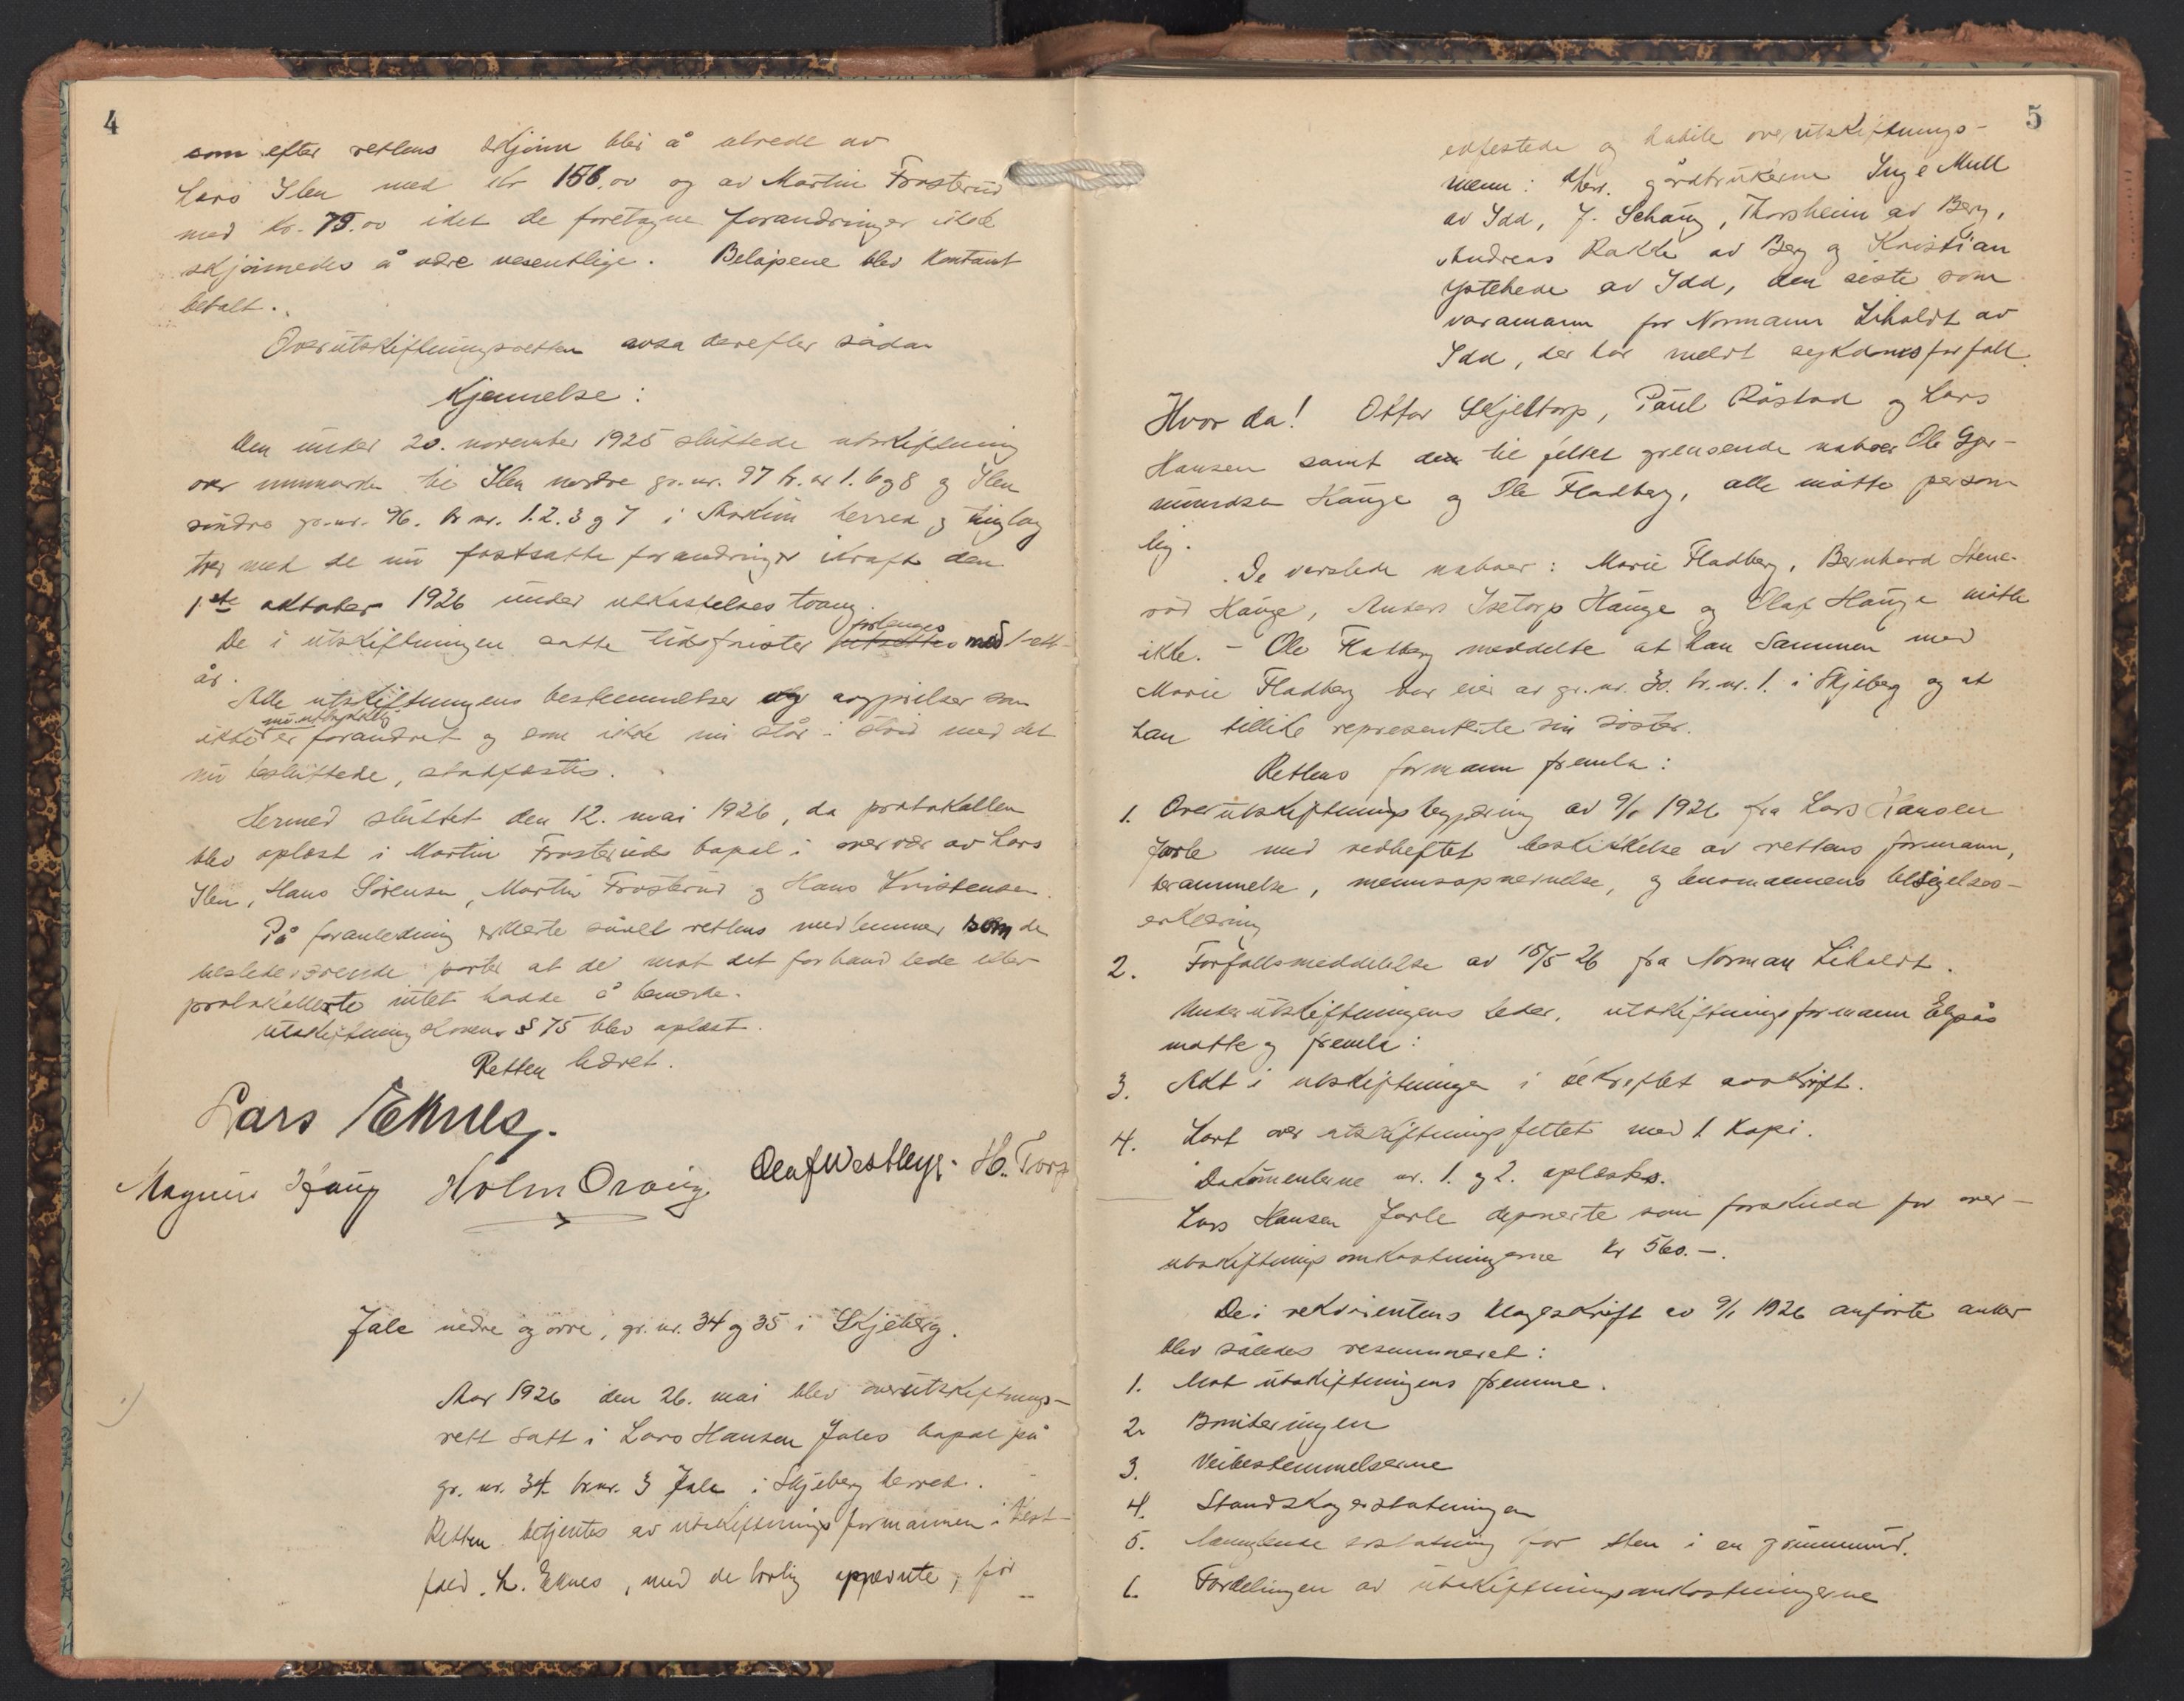 4
som efter rettens skjønn blir å utrede av
Lars Ilen med kr 156.00 og av Martin Frosterud
med kr. 75.00 idet de foretagne forandringer ikke
skjønnedes å være vesentlige. Beløpene blev kontant
betalt.
Overutskiftningsretten avsa derefter sådan
Kjennelse:
Den under 20. november 1925 sluttede utskiftning
over innmarken til Ilen nordre gr.nr. 97 br.nr 1. 6 og 8 og Ilen
søndre gr.nr. 96. br nr. 1. 2. 3 og 7 i herred og tinglag
trer med de nu fastsatte forandringer ikraft den
1ste oktober 1926 under utkastelses tvang.
De i utskiftningen satte tidsfrister utsettes forlenges med 1-ett-
år.
Alle utskiftningens bestemmelser og avgjørelser som
ikke er forandret og som ikke nu står i strid med det
nu besluttede, stadfestes.
Hermed sluttet den 12. mai 1926, da protokollen
blev oplest i Martin Frosteruds bopæl i overvær av Lars
Ilen, Hans Sørensen, Martin Frosterud og Hans Kristensen.
På foranledning erklærte såvel rettens medlemmer som de
tilstedeværende parter at de mot det forhandlede eller
protokollerte intet hadde å bemerke.
Utskiftningslovens § 75 blev oplest.
Retten hevet.
Lars Eknes.
Magnus Holm Olaf Westbye. H. Torp
Jale nedre og øvre, gr. nr. 34 og 35 i Skjeberg.
Aar 1926 den 26. mai blev overutskiftnings-
rett satt i Lars Hansen Jales bopæl på
gr. nr. 34 br.nr. 3 Jale i Skjeberg herred.
Retten betjentes av utskiftningsformannen i Vest-
fold, L. Eknes, med de lovlig opnevnte, før
5
edfestede og habile overutskiftnings-
menn: Herr. gårdbrukerne Inge Mull
av Idd, J. Schaug, Thorsheim av Berg,
Andreas Rakke av Berg og Kristian
Ystehede av Idd, den siste som
varamann for Normann Liholdt av
Idd, der har meldt sykdomsforfall.
Hvor da! Ottar Skjeltorp, Paul Råstad og Lars
Hansen samt de til feltet grensende naboer Ole Gjer-
mundsen Hauge og Ole Fladberg, alle møtte person-
lig.
De varslede naboer: Marie Fladberg, Bernhard Stene-
rød Hauge, Anders Isetorp Hauge og Olaf Hauge møtte
ikke. - Ole Fladberg meddelte at han sammen med
Marie Fladberg var eier av gr. nr. 30. br. nr. 1. i Skjeberg og at
han tillike representerte sin søster.
Rettens formann fremla:
1. Overutskiftningsbegjæring av 9/1 1926 fra Lars Hansen
Jarle med vedheftet beskikkelse av rettens formann,
berammelse, mennsopnevnelse, og lensmannens
erklæring
2. Forfallsmeddelelse av 15/5 26 fra Norman Liholdt.
Underutskiftningens leder, utskiftningsformann Elgsås
møtte og fremla:
3. Akt i utskiftningen i bekreftet avskrift.
4. Kart over utskiftningsfeltet med 1 kopi.
Dokumenterne nr. 1. og 2. oplestes.
Lars Hansen Jarle deponerte som forskudd for over-
utskiftningsomkostningerne kr 560.-.
De i rekvirentens klageskrift av 9/1 1926 anførte anker
blev således resummeret:
1. Mot utskiftningens fremme.
2. Boniteringen
3. Veibestemmelserne
4. Standskogerstatningen
5. Manglende erstatning for sten i en grunnmur.
6. Fordelingen av utskiftningsomkostningerne